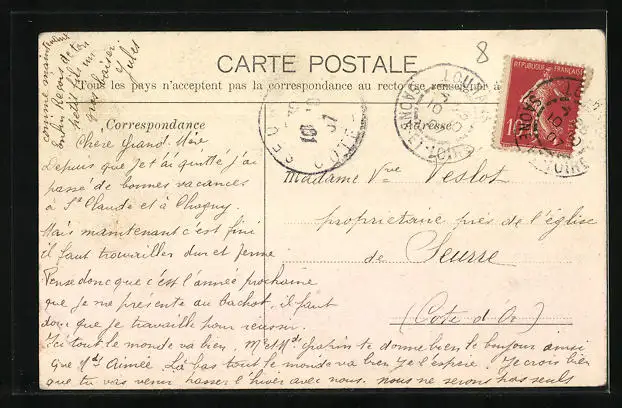 comme maintenant
enfin Reçois de ton
petit fils un
gros baiser.
Jules
8
CARTE POSTALE
Tous les pays n'acceptent pas la correspondance au recto (se renseigner à
REPUBLIQUE FRANÇAISE
10
LOUHANS
SAONE-ET-LOIRE
Correspondance
Adresse
Chère Grand. Mère
Depuis que je t'ai quitté j'ai
passé de bonnes vacances
à St Claude et à Chagny.
Mais maintenant c'est fini
il faut travailler dur et ferme
Pense donc que c'est l'année prochaine
que je me présente au bachot, il faut
donc que je travaille pour réussir.
Ici tout le monde va bien. Mr et Md te donne bien le bonjour ainsi
que Md Aimée. Là bas tout le monde va bien je l'espère. Je crois bien
que tu vas venir passer l'hiver avec nous. nous ne serons pas seuls
Madame Vve Veslot
propriétaire près de l'église
de Seurre
(Cote-d'Or)